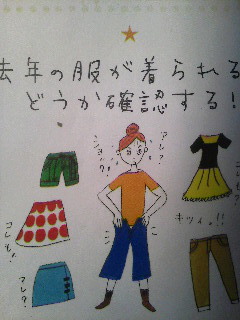 去年の服が着られる
どうか確認する!
アレ?
ショック!
キツイ。!!
コレも!
アレ?